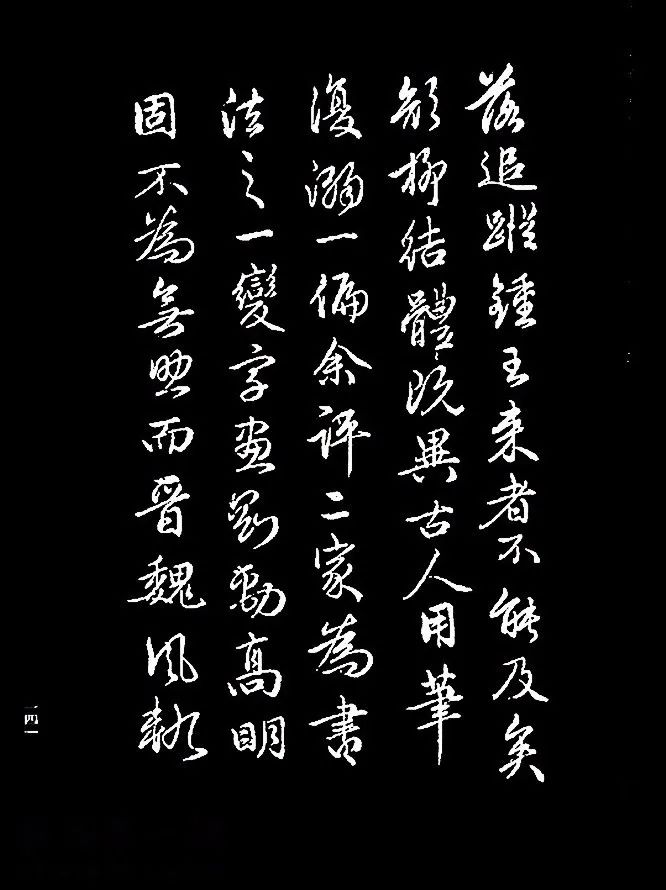 落追蹤鍾王来者不能及矣
顔柳結體既異古人用筆
復溺一偏余評二家為書
法之一變字畫剛勁高明
固不為無思而晉魏風軌
一四一